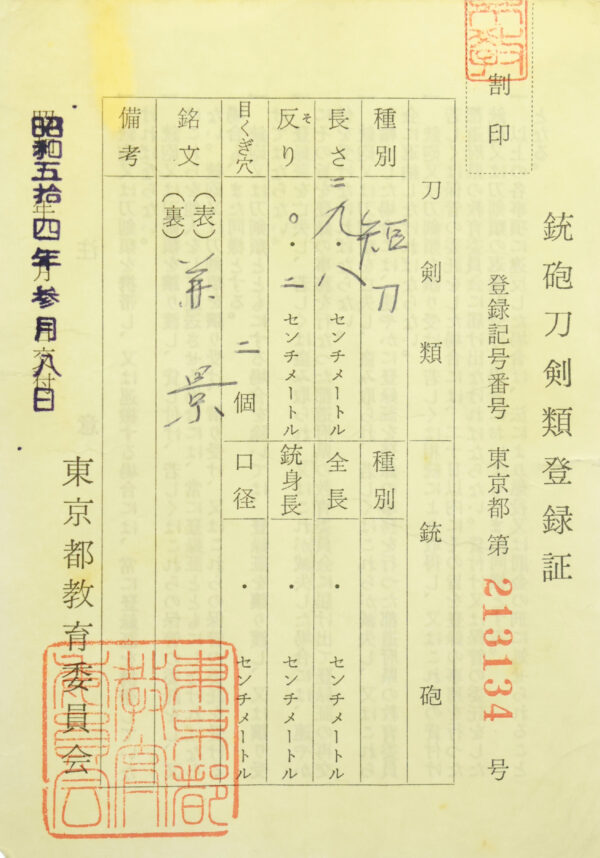 銃砲刀剣類登録証
割印
登録記号番号 東京都 第 213134 号
刀剣類
銃砲
種別 短刀
種別
長さ 二九・八 センチメートル
全長 ・ センチメートル
反り そ 〇・二 センチメートル
銃身長 ・ センチメートル
目くぎ穴 二 個
口径 ・ センチメートル
銘文 (表) (裏) 景
備考
昭和五拾四年参月八日
東京都教育委員会
東京都教育委員会